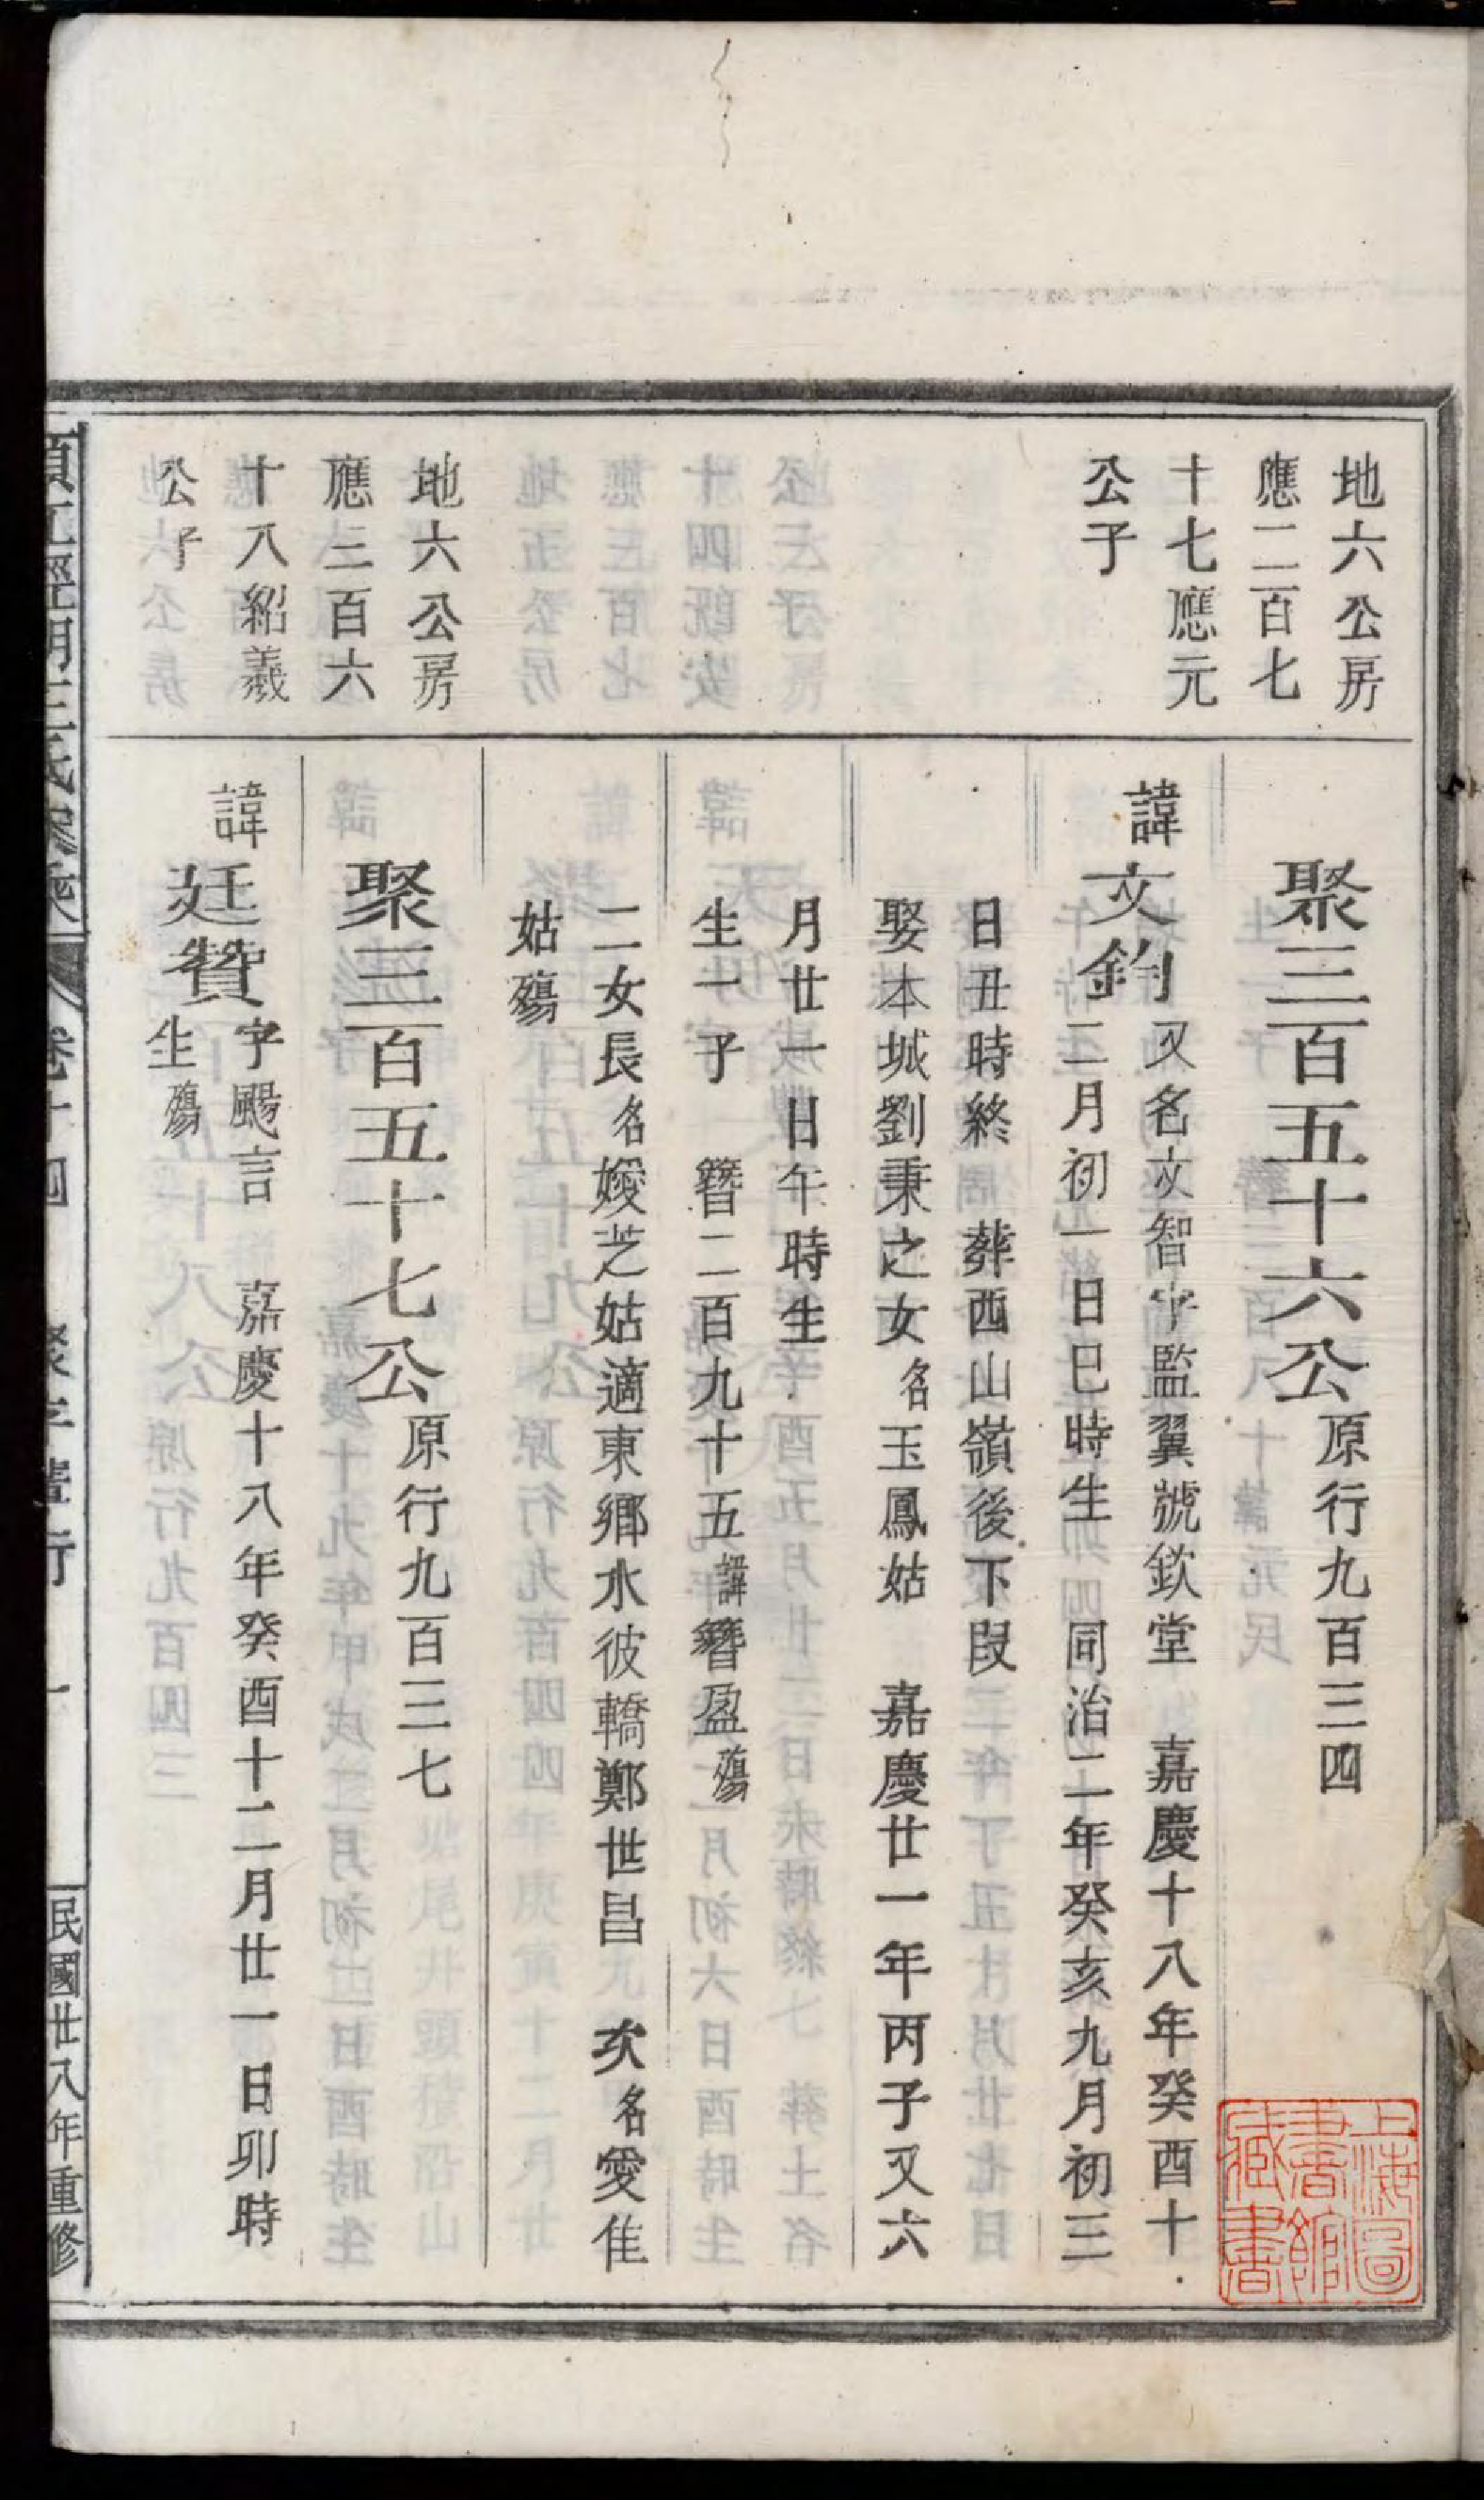 地六公房
應二百七
十七應元
公子
聚三百五十六公原行九百三四
諱文鈞又名文智字監翼號欽堂 嘉慶十八年癸酉十
二月初一日巳時生 同治二年癸亥九月初三
日丑時終 葬西山嶺後下段
娶本城劉秉之女名玉鳳姑 嘉慶廿一年丙子又六
月廿一日午時生
生一子 簪二百九十五諱簪盈殤
二女長名嬡芝姑適東鄉水彼轎鄭世昌 次名愛佳
姑殤
地六公房
應三百六
十八紹羲
公子
聚三百五十七公原行九百三七
諱廷贊字颺言 嘉慶十八年癸酉十二月廿一日卯時
生殤
卷十四
民國廿八年重修
上海圖書館藏書